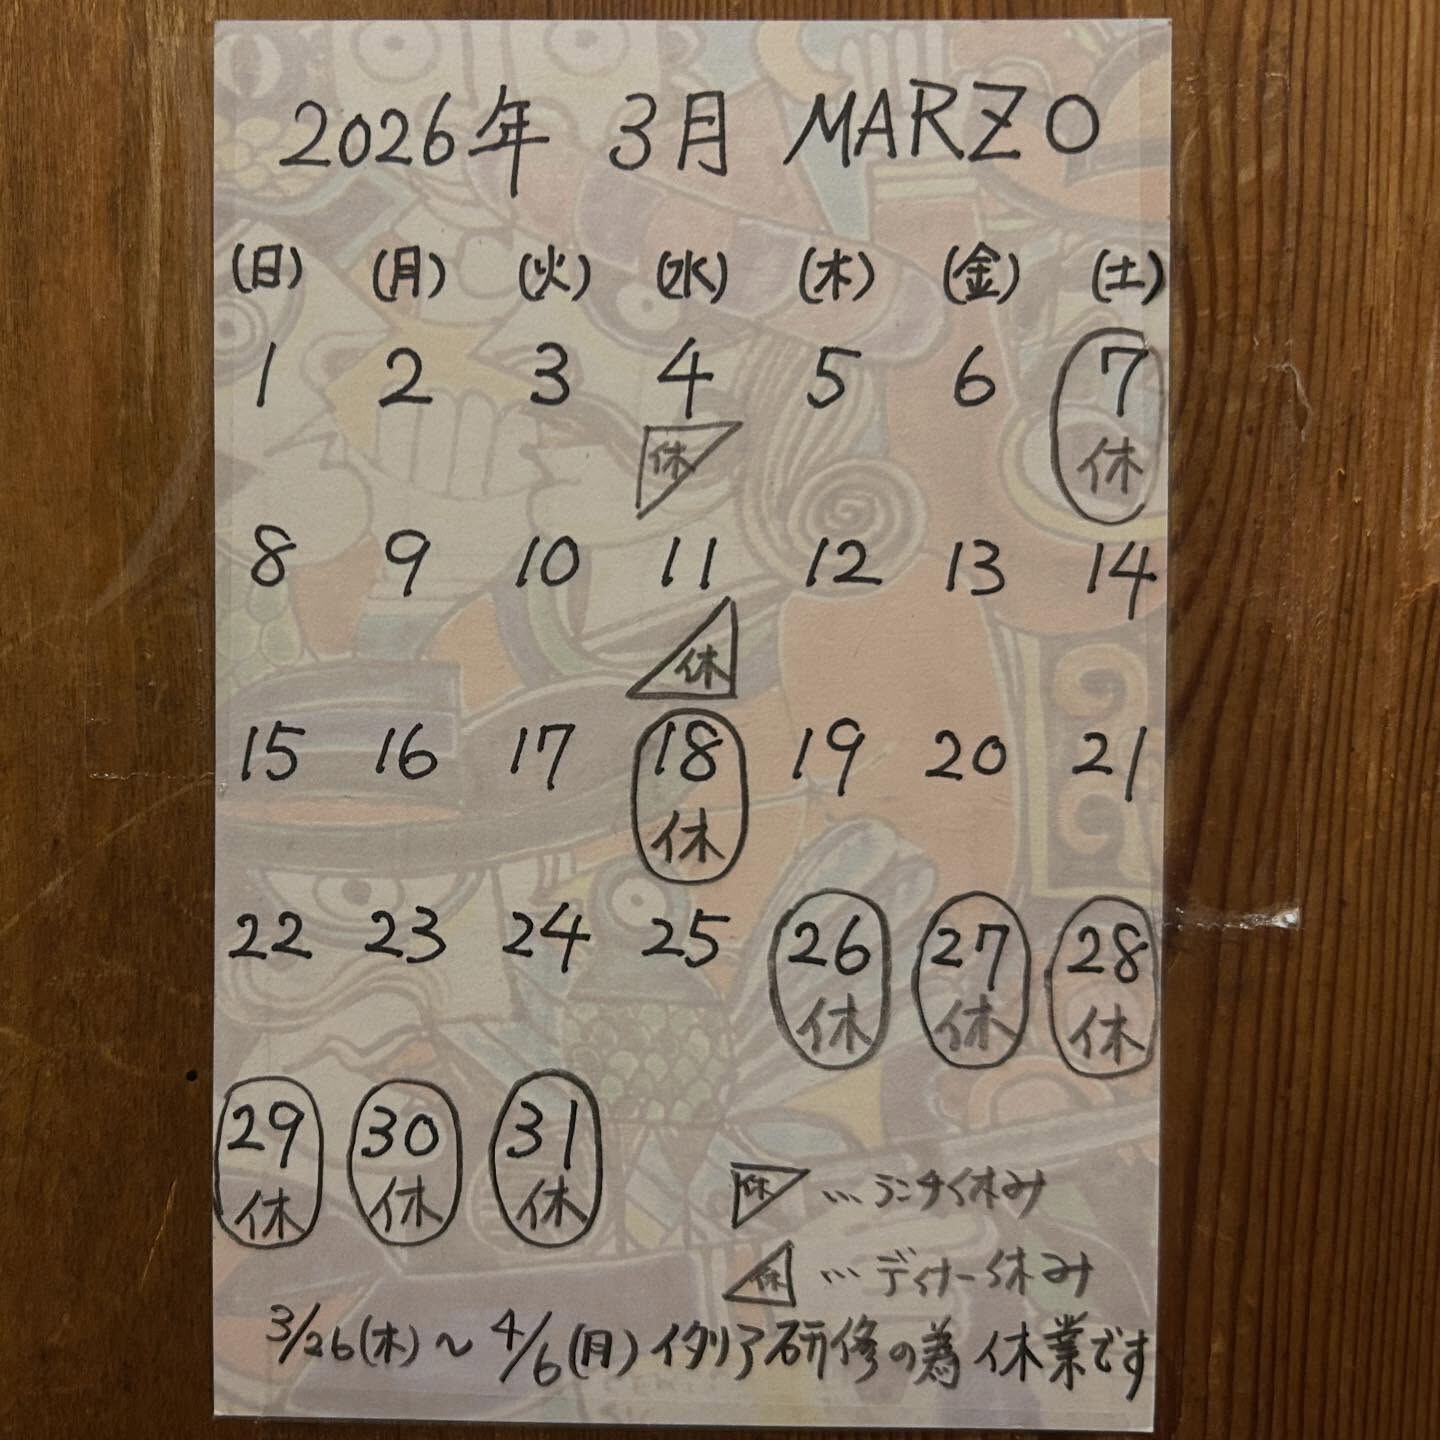 2026年 3月 MARZO
(日) (月) (火) (水) (木) (金) (土)
1 2 3 4 5 6 7
休 休
8 9 10 11 12 13 14
休
15 16 17 18 19 20 21
休
22 23 24 25 26 27 28
休 休 休
29 30 31
休 休 休
休 … ランチ休み
休 … ディナー休み
3/26(木)～4/6(月)イタリア研修の為休業です